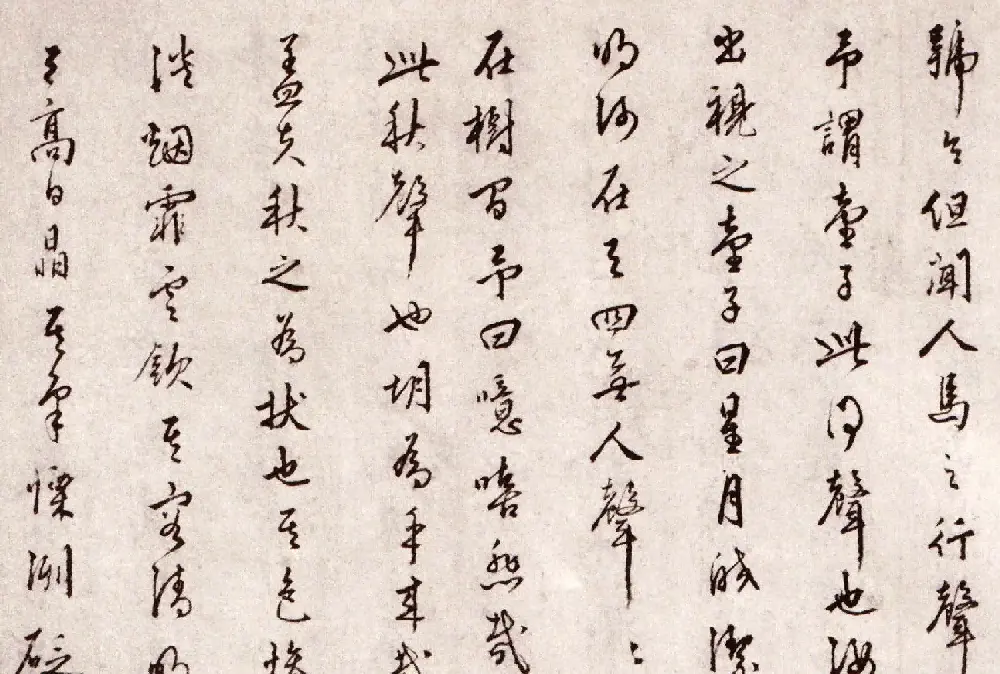 號令但聞人馬之行聲
予謂童子此何聲也汝
出視之童子曰星月皎潔
明河在天四無人聲聲
在樹間予曰噫嘻悲哉
此秋聲也胡為乎來哉
蓋夫秋之為狀也其色慘
淡烟霏雲斂其容清明
天高日晶其氣慄冽砭